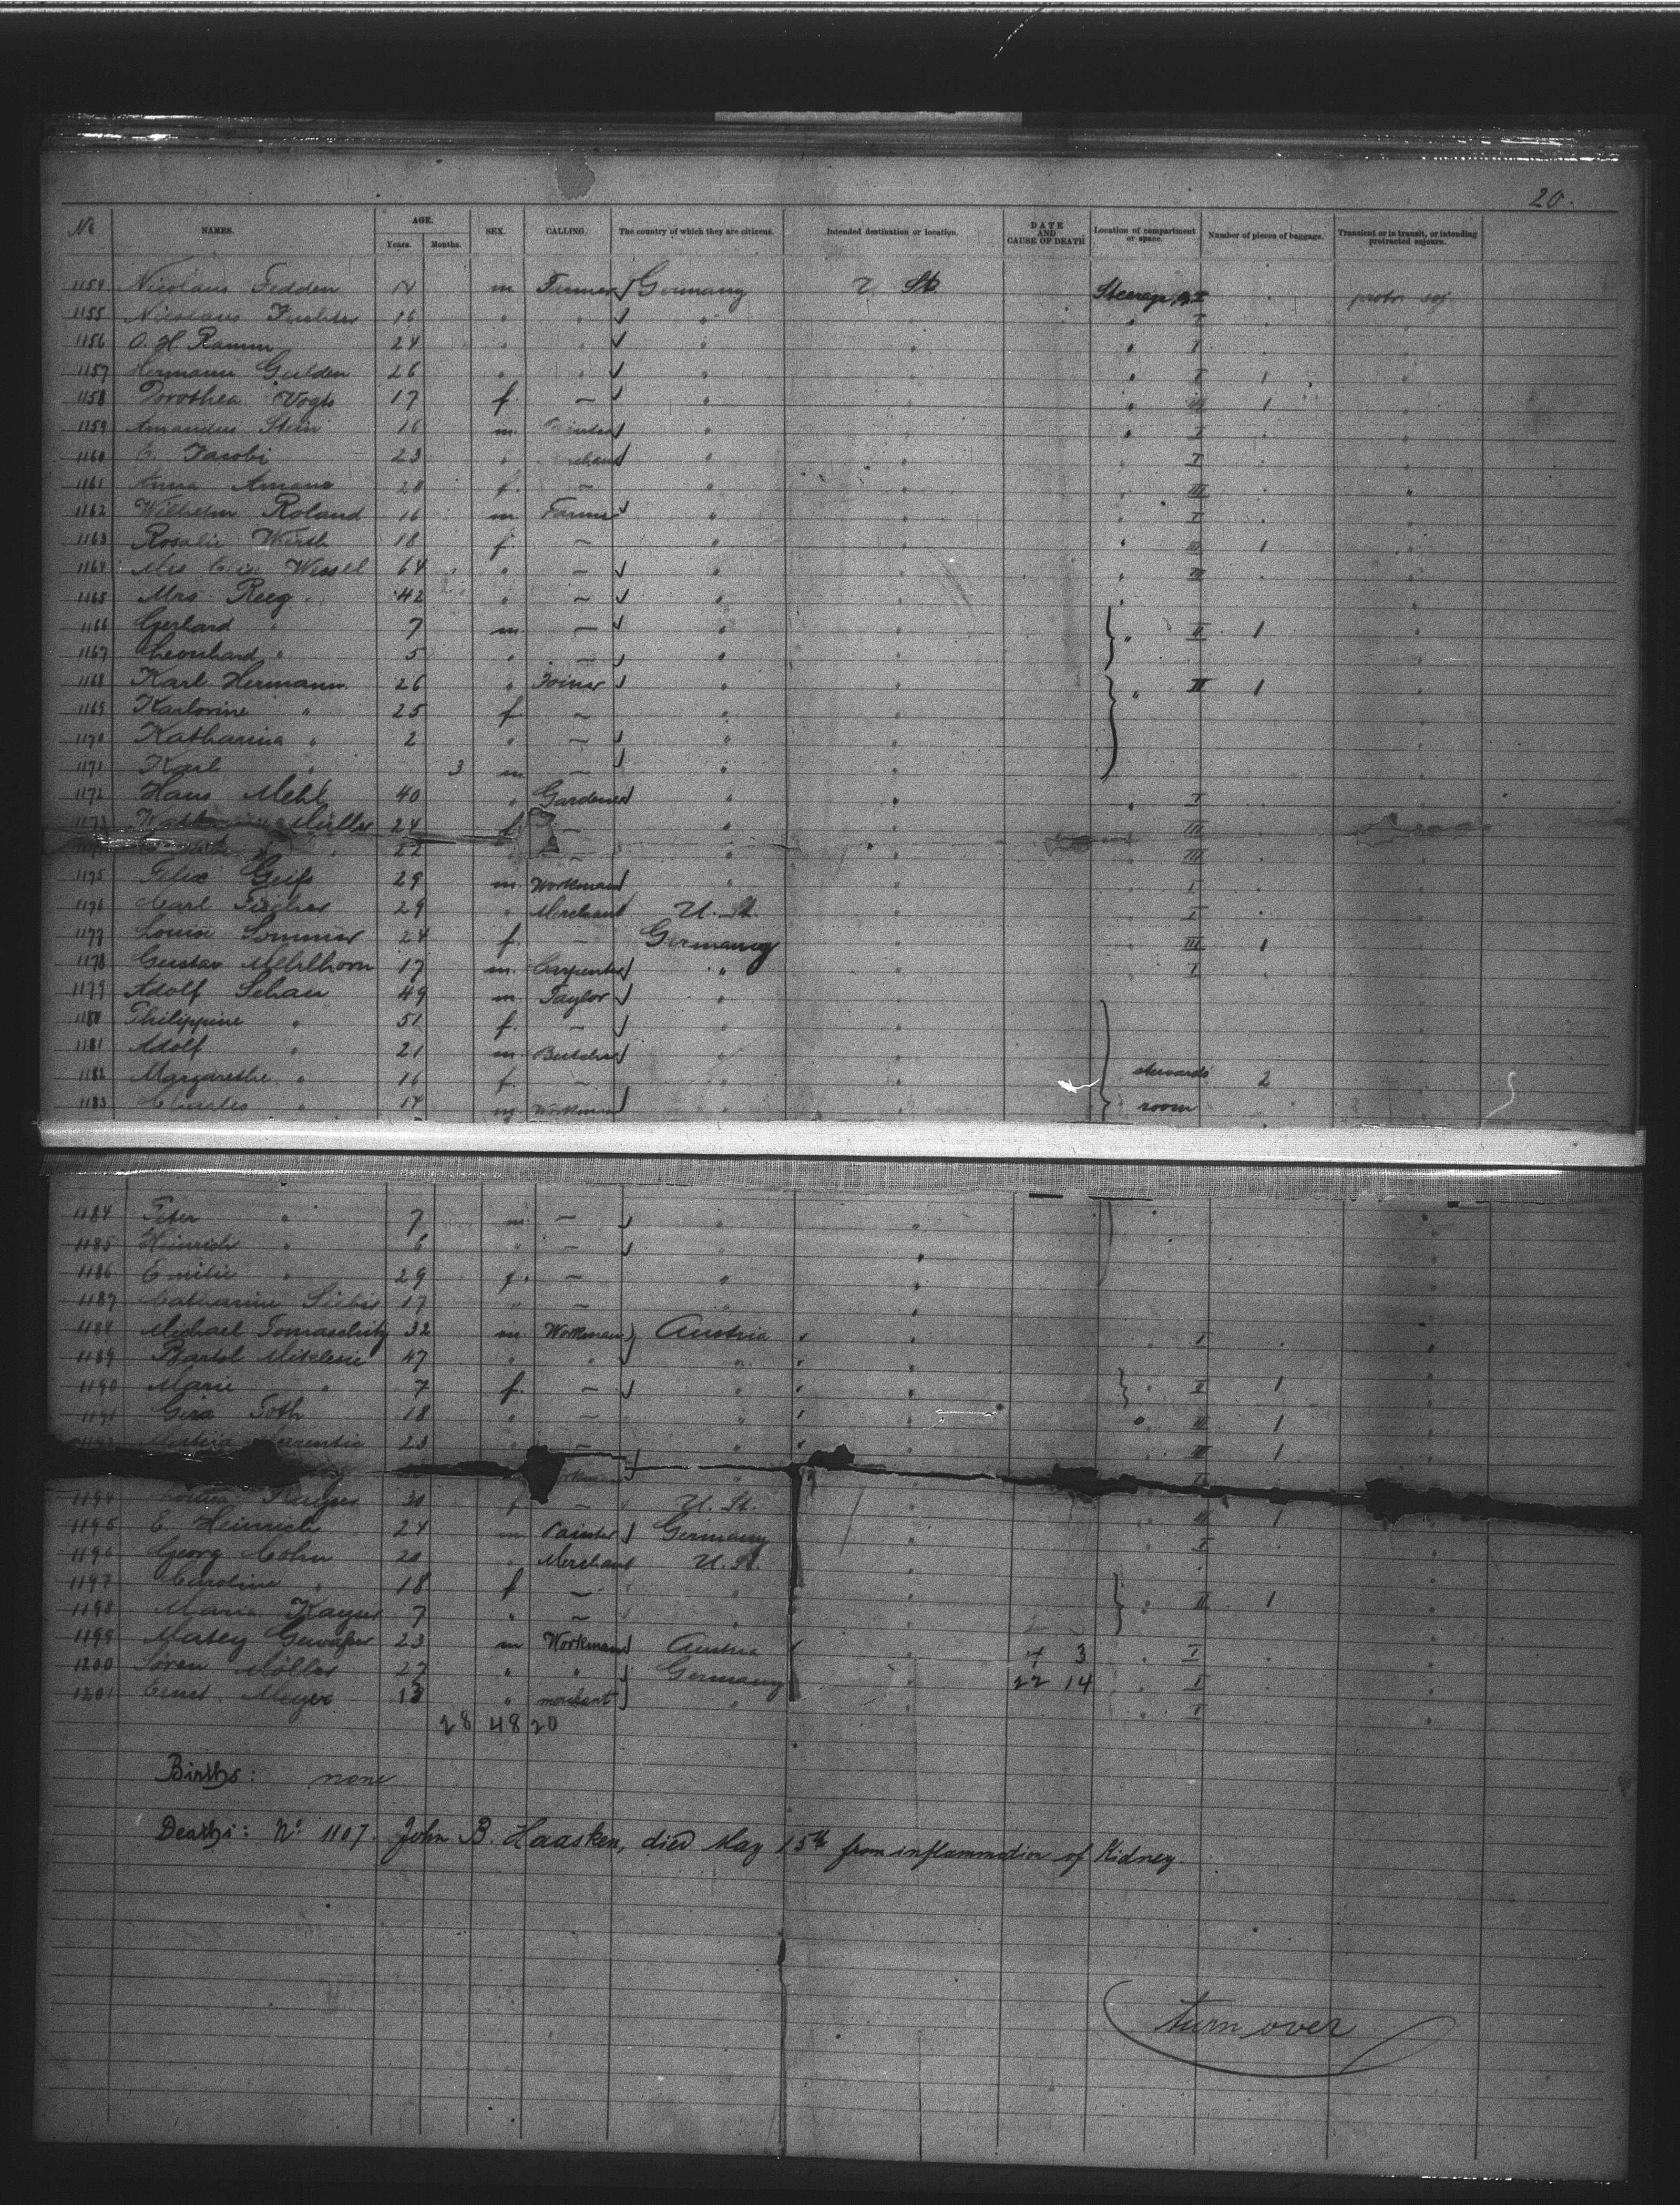 20.
No NAMES. AGE. Years. Months. SEX. CALLING. The country of which they are citizens. Intended destination or location. DATE AND CAUSE OF DEATH Location of compartment or space. Number of pieces of baggage. Transient or in transit, or intending protracted sojourn.
1154 Nicolaus Fedden 14 m Farmer Germany U St. Steerage I protr soj
1155 Nicolaus 16 " " " " " I "
1156 O. H. Ramm 24 " " " " " I "
1157 Hermann Gulden 26 " " " " " I 1 "
1158 Dorothea Vogts 17 f. – " " " III 1 "
1159 Amandus Stein 16 m. " " " I "
1160 C. Jacobi 23 " " " " I "
1161 Anna 20 f. – " " " III "
1162 Wilhelm Roland 16 m. Farmer " " " I "
1163 Rosalie Wirth 18 f. – " " " III 1 "
1164 Mrs Wessel 64 " – " " " III "
1165 Mrs. Reeg 42 " – " " " "
1166 Gerhard " 7 m. – " " " II 1 "
1167 Leonhard " 5 " – " " "
1168 Karl Hermann 26 " Joiner " " " II 1 "
1169 Karlorine " 25 f. – " " "
1170 Katharina " 2 " – " " "
1171 Karl " 3 m. – " " "
1172 Hans Mehl 40 " Gardener " " " I "
1173 Müller 24 f. – " " III
" 22 – " " III
1175 Felix Geiß 29 m. Workman " " " I "
1176 Carl Fischer 29 " Merchant U. St. " " I "
1177 Louise Sommer 24 f. – Germany " " III 1 "
1178 Gustav Mehlhorn 17 m. Carpenter " " " I "
1179 Adolf Schau 49 m. Taylor " " "
1180 Philippine " 51 f. – " " "
1181 Adolf " 21 m. Butcher " " "
1182 Margarethe " 16 f. – " " stewards 2 "
1183 Charles " 14 m. Workman " " room "
1184 Peter " 7 m. – " " "
1185 Heinrich " 6 " – " " "
1186 Emilie " 29 f. – " " "
1187 Catharine 17 " – " "
1184 Michael Tomaschitz 32 m Workman Austria " " I "
1189 Bartol 47 " " " " "
1190 Marie " 7 f. – " " " II 1 "
1191 Toth 18 " – " " " III 1 "
23 " – " " " III 1 "
" I
1194 30 f – U. St. " III 1 "
1195 C. Heinrich 24 m Painter Germany " I "
1196 Georg Cohn 20 " Merchant U. St. "
1197 Caroline " 18 f – " " " II 1 "
1198 Maria Kayser 7 " – " " "
1199 Matey 23 m Workman Austria " 4 3 " I "
1200 Sören Möller 27 " " Germany " 22 14 " I "
1201 Ernst Meyer 13 " merchant " " " I "
28 48 20
Births: none
Deaths: No 1107. John B. Haasken, died May 15th from inflammation of Kidney.
turn over